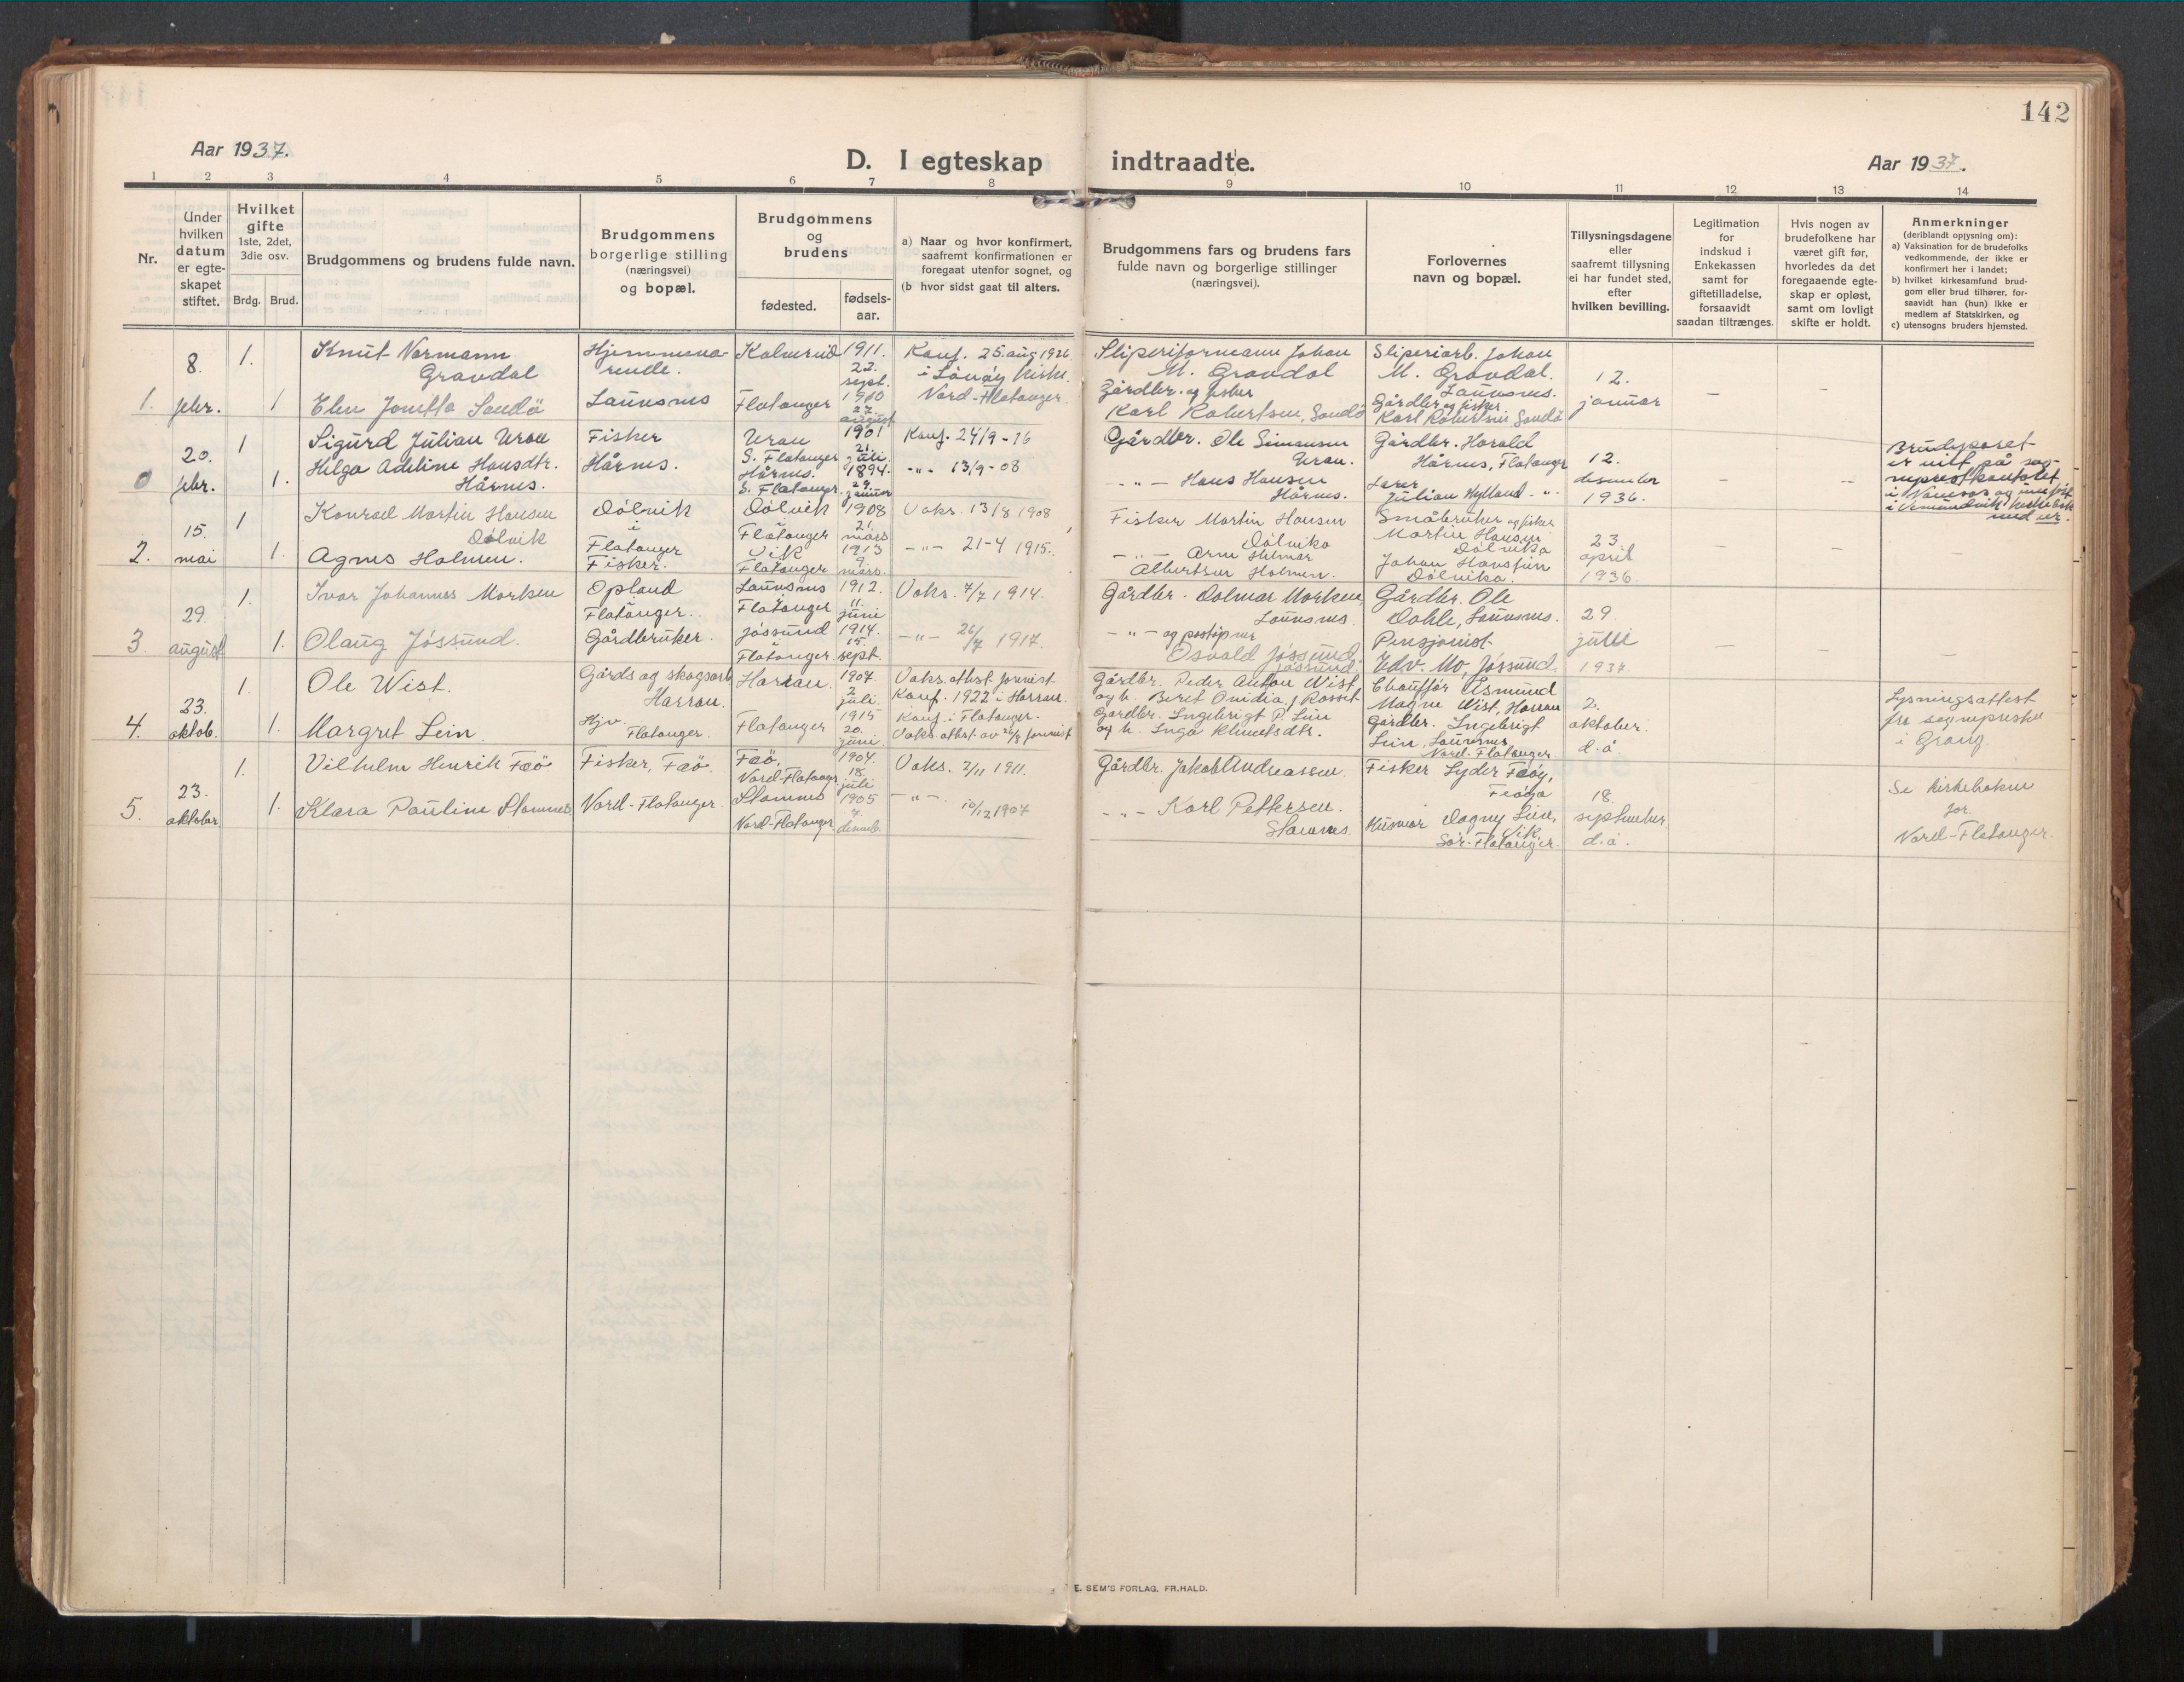 142
Aar 1937.
D. I egteskap indtraadte.
Aar 1937.
1 2 3 4 5 6 7 8 9 10 11 12 13 14
Nr.
Under hvilken datum er egte-skapet stiftet.
Hvilket gifte
1ste, 2det, 3die osv.
Brdg. Brud.
Brudgommens og brudens fulde navn.
Brudgommens borgerlige stilling (næringsvei) og bopæl.
Brudgommens og brudens
fødested.
fødsels-aar.
a) Naar og hvor konfirmert, saafremt konfirmationen er foregaat utenfor sognet, og
(b hvor sidst gaat til alters.
Brudgommens fars og brudens fars fulde navn og borgerlige stillinger (næringsvei).
Forlovernes navn og bopæl.
Tillysningsdagene eller saafremt tillysning ei har fundet sted, efter hvilken bevilling.
Legitimation for indskud i Enkekassen samt for giftetilladelse, forsaavidt saadan tiltrænges.
Hvis nogen av brudefolkene har været gift før, hvorledes da det foregaaende egte-skap er opløst, samt om lovligt skifte er holdt.
Anmerkninger
(deriblandt opjysning om):
a) Vaksination for de brudefolks vedkommende, der ikke er konfirmert her i landet;
b) hvilket kirkesamfund brud-gom eller brud tilhører, for-saavidt han (hun) ikke er medlem af Statskirken, og
c) utensogns bruders hjemsted.
1. 8. febr. 1. 1
Knut Normann
Gravdal
Elen Josefta Sandö
Launsnes
Flatanger
1911. 22. sept.
1910 27. august
Konf. 25. aug 1926
Nord-Flatanger
Sliperiformann Johan
M. Gravdal
Gårdbr. og fisker
Karl Robertsen, Sandö
Sliperiarb. Johan
M. Gravdal.
Launsnes.
Gårdbr og fisker
Karl Robertsen Sandö
12. januar
– –
0 20. febr. 1 1.
Sigurd Julian Uran
Helga Adeline Hansdtr.
Hårnes.
Fisker
Hårnes.
Uran
S. Flatanger
Hårnes.
S. Flatanger.
1901 21. juli
1894. 29. januar
Konf. 24/9 - 16
-"- 13/9 - 08
Gårdbr. Ole Simonsen
Uran.
-"- Hans Hansen
Hårnes.
Gårdbr. Harald
Hårnes, Flatanger
Lærer
Julian Hylland -"-
12. desember 1936.
– –
er vitt på sog-
2. 15. mai 1 1.
Konrad Martin Hansen
Dölvik
Agnes Holmen.
Dölvik
i
Flatanger
Fisker.
Dölvik
Flatanger
Vik
Flatanger
1908 21. mars
1913 9. mars.
Vaks. 13/8 1908
-"- 21-4 1915.
Fisker Martin Hansen
Dölvika
-"- Arne Hilmar
Albertsen Holmen.
Småbruker og fisker
Martin Hansen
Dölvika
Johan Hansfjen
Dölvika.
23 april 1936.
– – –
3. 29. august 1. 1.
Ivar Johannes Morken
Olaug Jössund.
Opland
Flatanger.
Gårdbruker.
Launsnes
Flatanger
Jössund
Flatanger.
1912. 11. juni
1914. 15. sept.
Vaks. 7/7 1914.
-"- 26/7 1917.
Gårdbr. Dolmar Morken,
Launsnes.
-"- og poståpner
Osvald Jössund,
Jössund
Gårdbr. Ole
Dahle, Launsnes.
Pensjonist
Edv. Mo, Jössund
29 juli 1937.
– – –
4. 23. oktob. 1. 1.
Ole Wist.
Margret Lein
Gårds og skogsarb
Harran.
Hjv.
Flatanger.
Harran.
Flatanger
1907. 2. juli.
1915 20. juni
Vaks. attst. forevist
Konf. 1922 i Harran.
Konf. i Flatanger.
Vaks. attst. av 26/8 forevist
Gårdbr. Peder Anton Wist
og h. Beret Onidia f. Rosset
Gårdbr. Ingebrigt P. Lein
og h. Inga Klemetsdtr.
Chauffør Asmund
Magne Wist, Harran
Gårdbr. Ingebrigt
Lein, Launsnes,
Nord-Flatanger
2. oktober d.å.
Lysningsattest
fra sognepresten
i Grong
5. 23. oktober 1. 1.
Vilhelm Henrik Fæö
Klara Pauline Stamnes
Fisker, Fæö.
Nord-Flatanger
Fæö,
Nord-Flatanger
Stamnes
Nord-Flatanger
1904. 18. juli
1905 7. desemb.
Vaks. 2/11 1911.
-"- 10/12 1907
Gårdbr. Jakob Andreassen.
-"- Karl Pettersen.
Stamnes.
Fisker Lyder Fæöy,
Husmor Dagny Lein,
Vik,
Sör-Flatanger.
18. september d.å.
Se kirkeboken
for
Nord-Flatanger.
E. SEM'S FORLAG. FR.HALD.